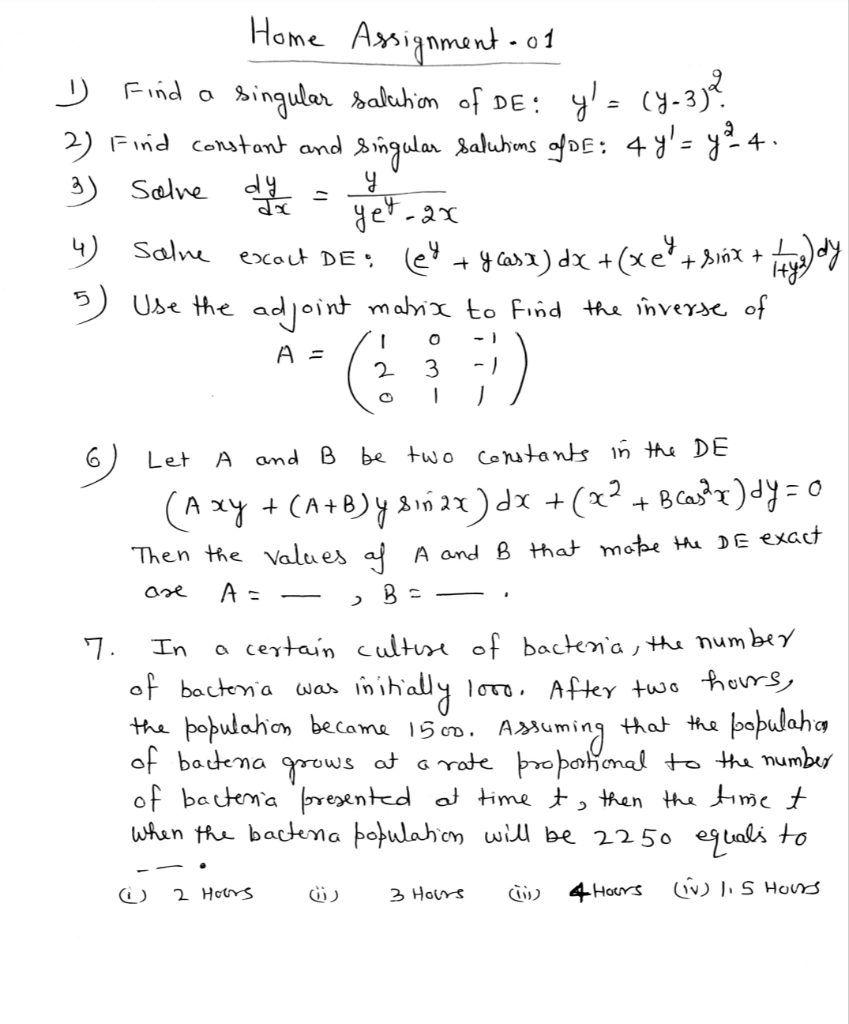 Home Assignment - 01
1) Find a singular solution of DE: y' = (y-3)².
2) Find constant and singular solutions of DE: 4y' = y² - 4.
3) Solve dy/dx = y/(ye^y - 2x)
4) Solve exact DE: (e^y + y cosx) dx + (xe^y + sinx + 1/(1+y²)) dy
5) Use the adjoint matrix to find the inverse of
A = ( 1 0 -1
2 3 -1
0 1 1 )
6) Let A and B be two constants in the DE
(Axy + (A+B)y sin2x) dx + (x² + B cos²x) dy = 0
Then the values of A and B that make the DE exact
are A = — , B = — .
7. In a certain culture of bacteria, the number
of bacteria was initially 1000. After two hours,
the population became 1500. Assuming that the population
of bacteria grows at a rate proportional to the number
of bacteria presented at time t, then the time t
when the bacteria population will be 2250 equals to
— — .
(i) 2 Hours (ii) 3 Hours (iii) 4 Hours (iv) 1.5 Hours